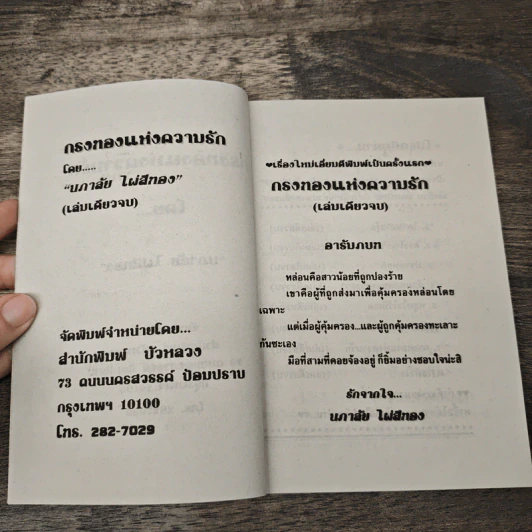 กรงทองแห่งความรัก
โดย.....
"นภาลัย ไผ่สีทอง"
(เล่มเดียวจบ)
จัดพิมพ์จำหน่ายโดย...
สำนักพิมพ์ บัวหลวง
73 ถนนนครสวรรค์ ป้อมปราบ
กรุงเทพฯ 10100
โทร. 282-7029
❤เรื่องใหม่เดี่ยมตีพิมพ์เป็นครั้งแรก❤
กรงทองแห่งความรัก
(เล่มเดียวจบ)
อารัมภบท
หล่อนคือสาวน้อยที่ถูกปองร้าย
เขาคือผู้ที่ถูกส่งมาเพื่อคุ้มครองหล่อนโดย
เฉพาะ
แต่เมื่อผู้คุ้มครอง...และผู้ถูกคุ้มครองทะเลาะ
กันซะเอง
มือที่สามที่คอยจ้องอยู่ ก็ยิ้มอย่างชอบใจน่ะสิ
รักจากใจ...
นภาลัย ไผ่สีทอง